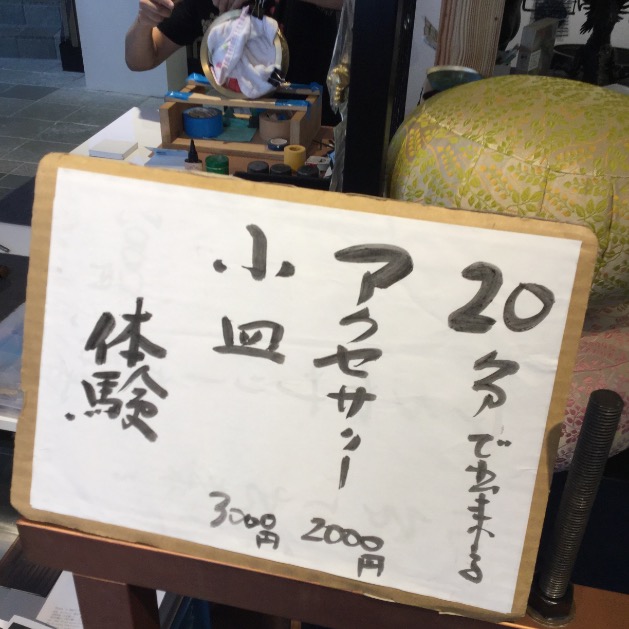 20分で出来る
アクセサリー 2000円
小皿 3000円
体験